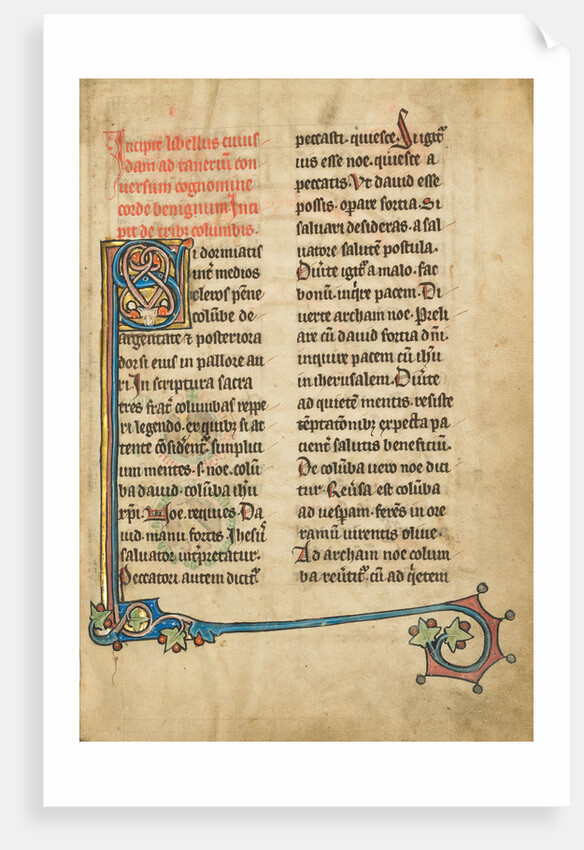 Incipit libellus cuius
dam ad ranerium con
uersum cognomine
corde benignum. Inci
pit de tribꝫ columbis.
Si dormiatis
int̄ medios
cleros pēne
colūbe de
argentate ⁊ posteriora
dorsi eius in pallore au
ri. In scriptura sacra
tres fratr̄ columbas reppe
ri legendo. ex quibꝫ si at
tente cōsiderent̉ simplici
um mentes. s. noe. colū
ba dauid. colūba ihū
xp̄i. Noe. requies. Da
uid. manu fortis. Ihesus
saluator int̉pretatur.
Peccatori autem dicit̉
peccasti. quiesce. Si igit̉
uis esse noe. quiesce a
peccatis. Vt dauid esse
possis. opare fortia. Si
saluari desideras. a sal
uatore salutē postula.
Diuerte igit̉ a malo. fac
bonū. inq̉re pacem. Di
uerte archam noe. Preli
are cū dauid fortia dn̄i.
inquire pacem cū ihū
in iherusalem. Diuerte
ad quietem mentis. resiste
tēptationibꝫ expecta pa
cient̉ salutis beneficiū.
De colūba uero noe dici
tur. Reūsa est colūba
ad uesperam. ferēs in ore
ramū uirentis oliue.
Ad archam noe colum
ba reūtit̉. cū ad q̉etem